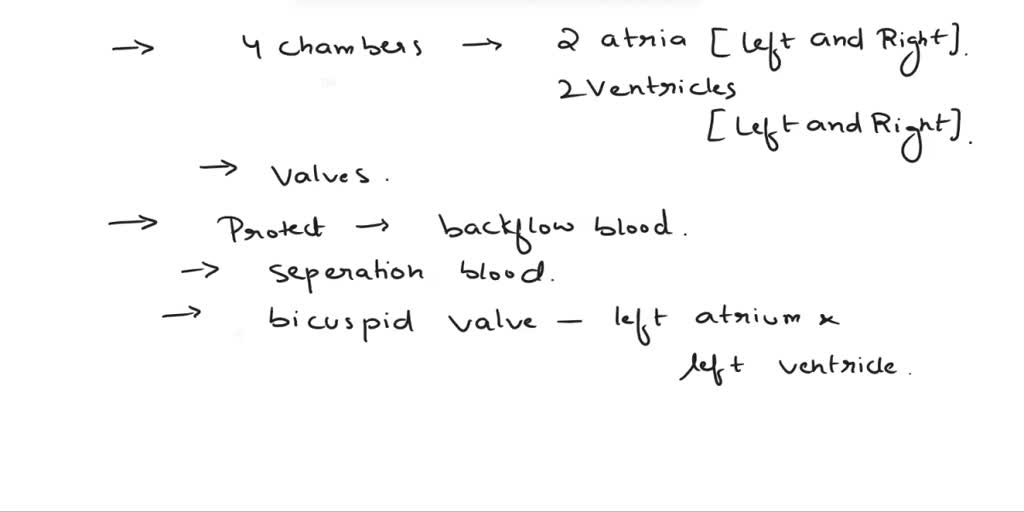 → 4 chambers → 2 atria [Left and Right].
2 Ventricles
[Left and Right].
→ Valves.
→ Protect → backflow blood.
→ seperation blood.
→ bicuspid valve – left atrium &
left ventricle.